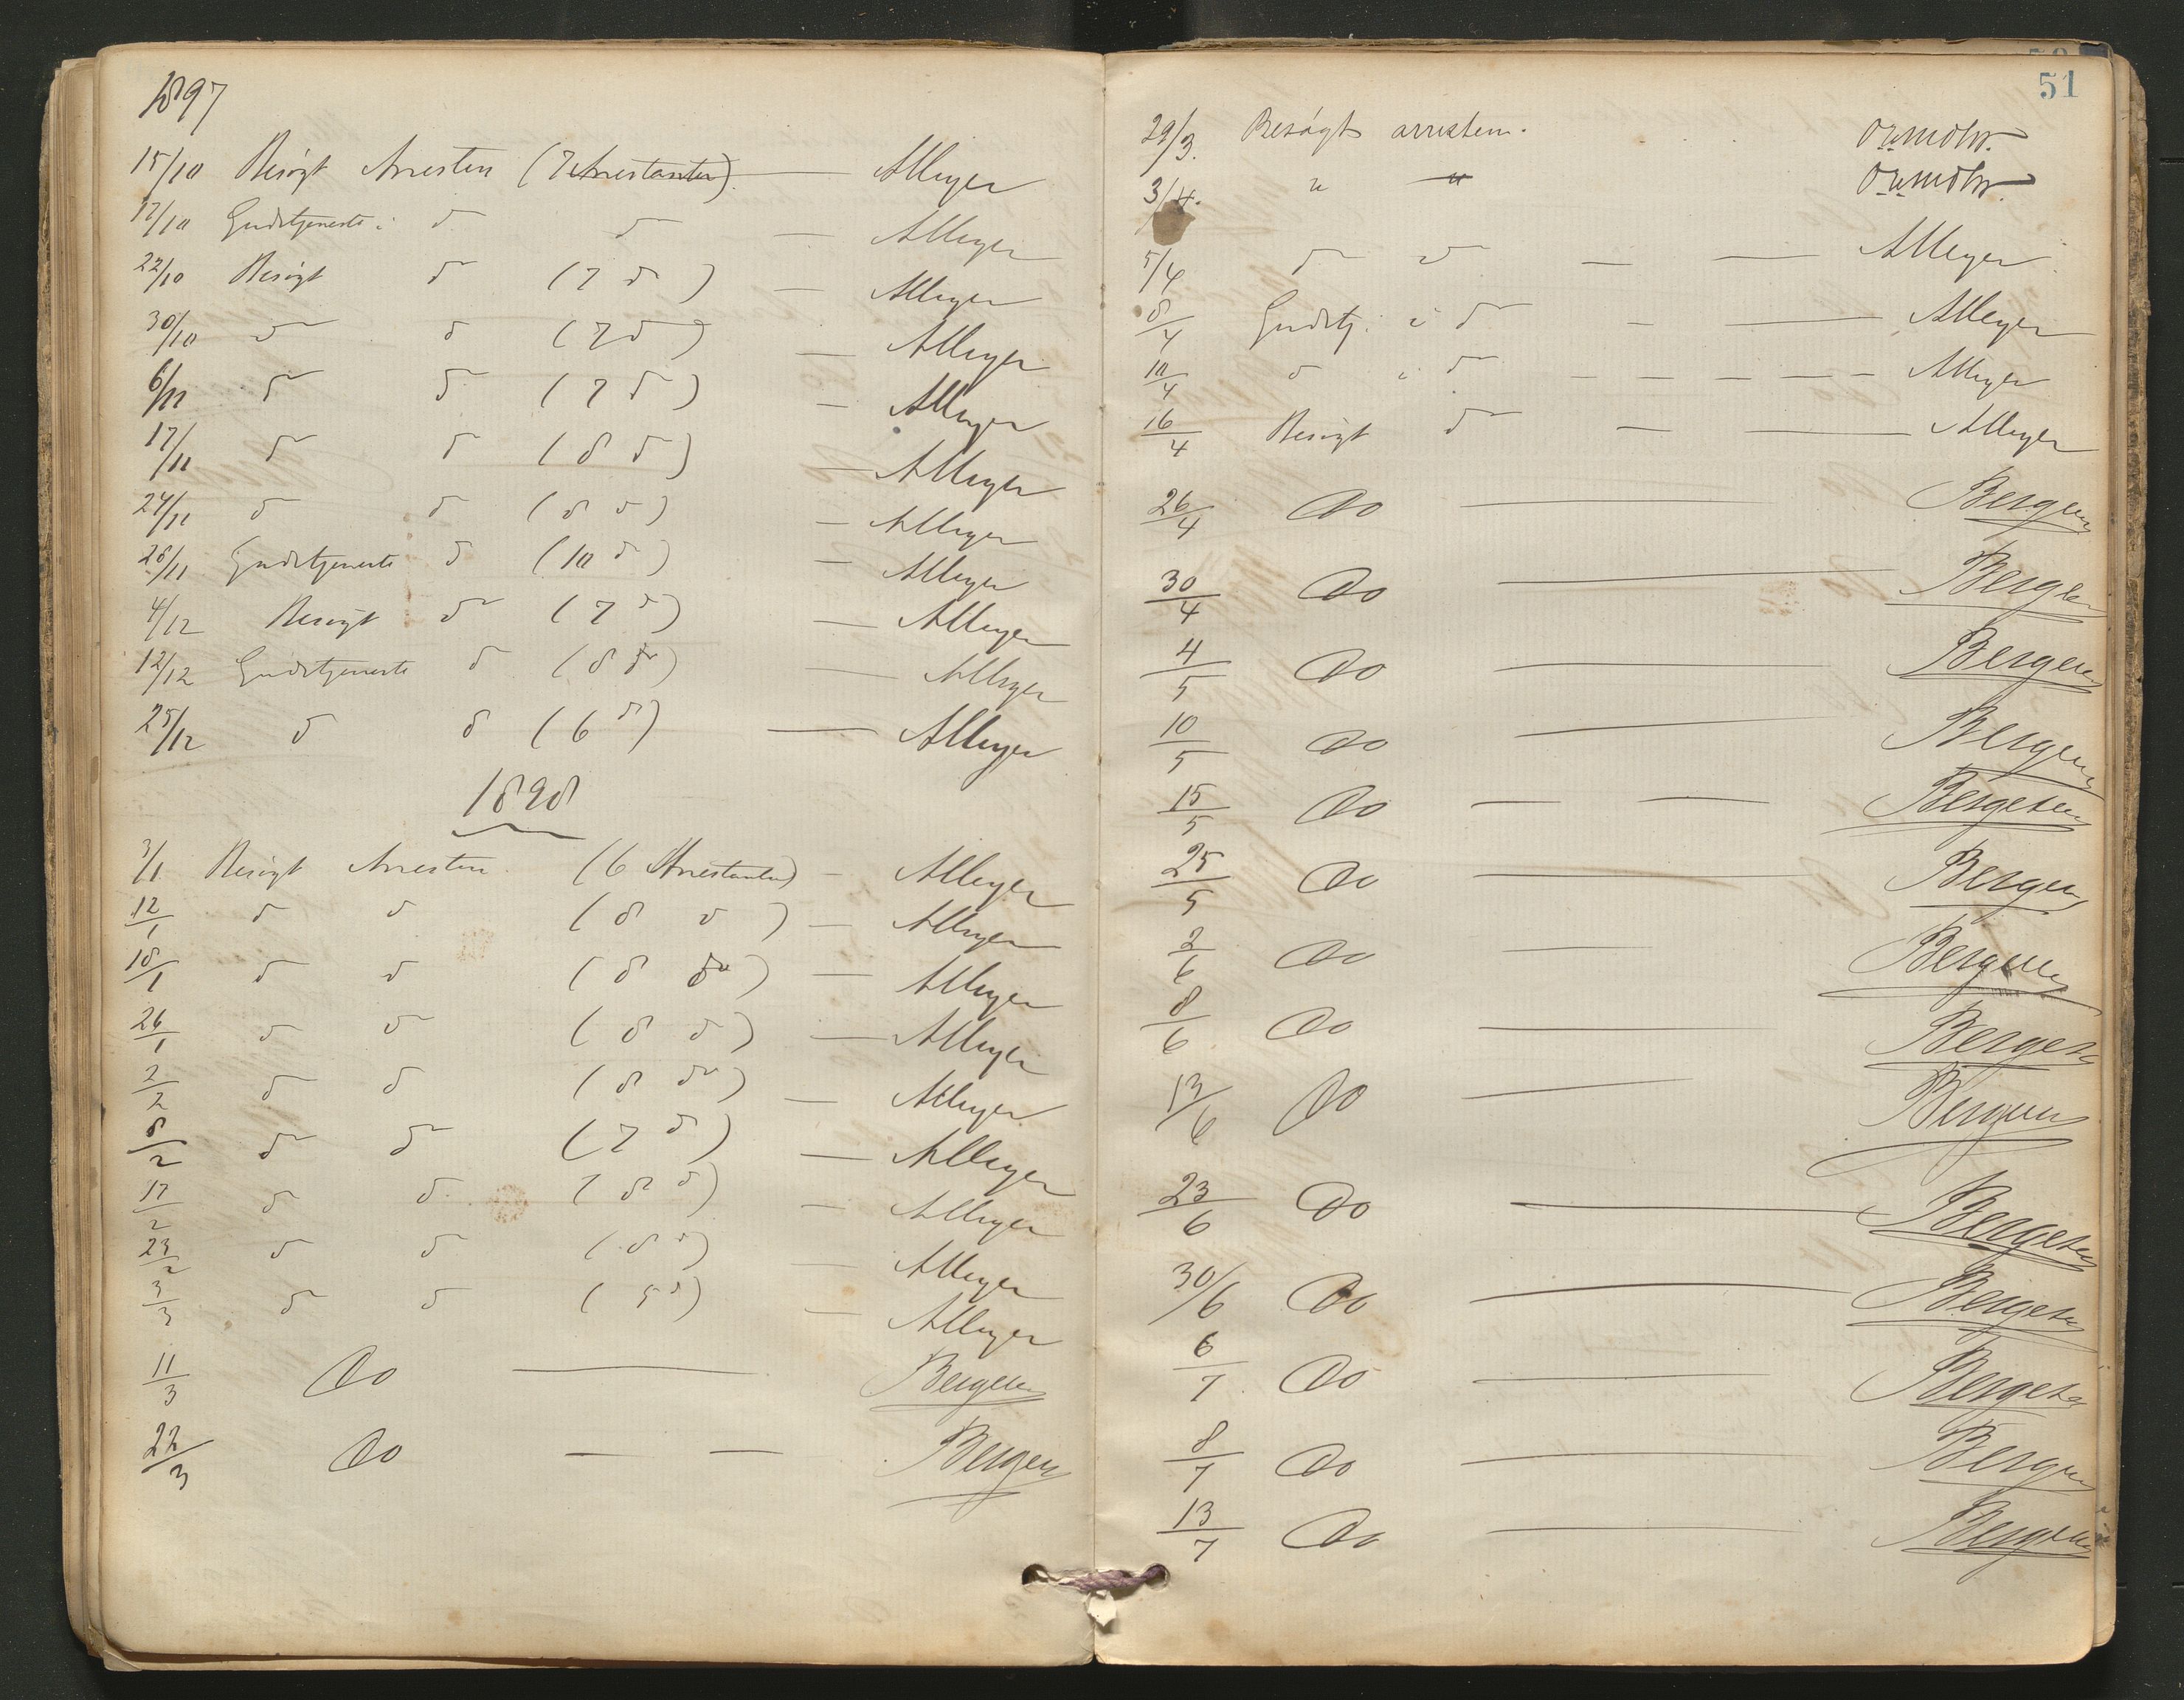 1897
15/10 Besögt Arresten (7 Arrestanter). — AMeyer
17/10 Gudstjeneste i do do — AMeyer
22/10 Besögt do (7 do) — AMeyer
30/10 do do (7 do) — AMeyer
6/11 do do (7 do) — AMeyer
17/11 do do (8 do) — AMeyer
24/11 do do (8 do) — AMeyer
28/11 Gudstjeneste do (10 do) — AMeyer
4/12 Besögt do (7 do) — AMeyer
12/12 Gudstjeneste do (8 do) — AMeyer
25/12 do do (6 do) — AMeyer
1898
3/1 Besögt Arresten (6 Arrestanter) — AMeyer
12/1 do do (8 do) — AMeyer
18/1 do do (8 do) — AMeyer
26/1 do do (8 do) — AMeyer
2/2 do do (8 do) — AMeyer
8/2 do do (7 do) — AMeyer
17/2 do do (8 do) — AMeyer
23/2 do do (8 do) — AMeyer
3/3 do do (5 do) — AMeyer
11/3 Do — Bergesen
22/3 Do — — Bergesen
51
29/3. Besøgt arresten.
3/4. " "
5/4 do do — — AMeyer
8/4 Gudstj. i do — — AMeyer
10/4 do i do — — — — — AMeyer
16/4 Besögt do — — AMeyer
26/4 Do — Bergesen
30/4 Do — Bergesen
4/5 Do — Bergesen
10/5 Do — Bergesen
15/5 Do — — Bergesen
25/5 Do — Bergesen
2/6 Do — Bergesen
8/6 Do — Bergesen
13/6 Do — Bergesen
23/6 Do — Bergesen
30/6 Do — Bergesen
6/7 Do — Bergesen
8/7 Do — Bergesen
13/7 Do — Bergesen